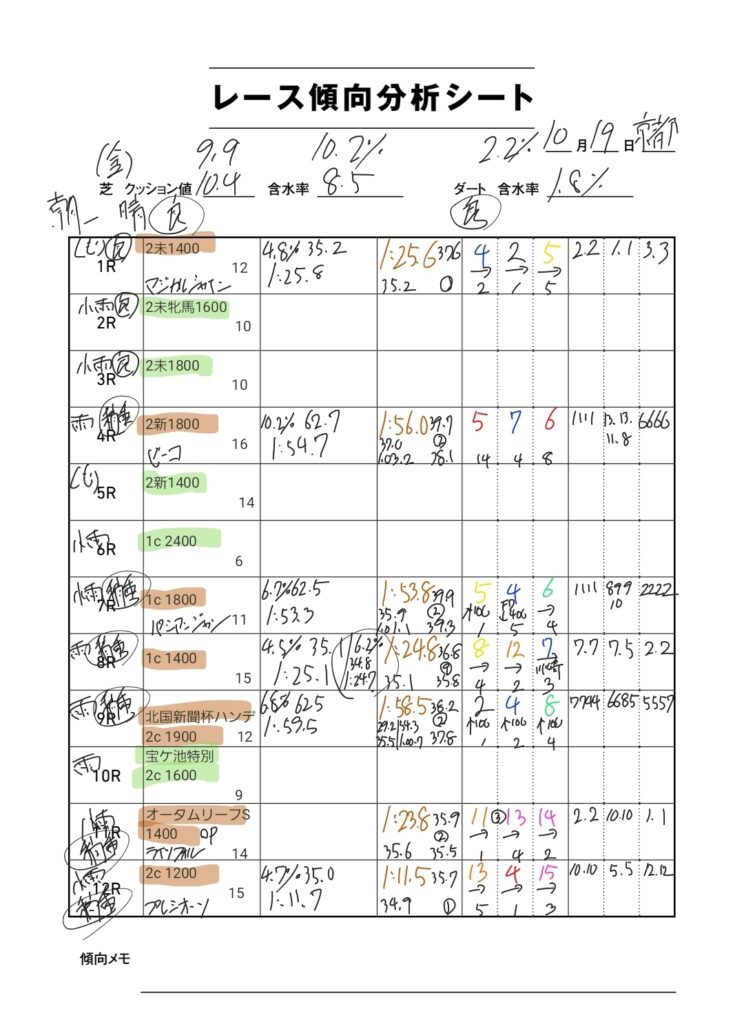 レース傾向分析シート
(金) 9.9 10.2% 2.2% 10月19日 京都
芝 クッション値 10.4 含水率 8.5 ダート 含水率 1.8%
朝一 晴 良 良
(もり) 良 1R 2未1400 12 4.8% 35.2 1:25.8 1:25.6 37.6 35.2 4 2 5 → → → 2 1 5 2.2 1.1 3.3
小雨 良 2R 2未牝馬1600 10
小雨 良 3R 2未1800 10
雨 稍重 4R 2新1800 16 10.2% 62.7 1:54.7 1:56.0 39.7 37.0 ② 1:03.2 38.1 5 7 6 14 4 8 1111 13.13.11.8 6666
5R 2新1400 14
小雨 6R 1c 2400 6
小雨 稍重 7R 1c 1800 11 6.7% 62.5 1:53.3 1:53.8 39.9 35.9 ② 1:01.1 39.3 5 4 6 1 5 4 1111 899 10 2222
雨 稍重 8R 1c 1400 15 4.5% 35.1 1:25.1 6.2% 34.8 1:24.7 1:24.8 36.8 35.1 35.8 8 12 7 → → 4 2 3 7.7 7.5 2.2
雨 稍重 9R 北国新聞杯ハンデ 2c 1900 12 6.8% 62.5 1:59.5 1:58.5 38.2 29.2 34.3 ② 35.5 1:00.7 37.8 2 4 8 ↑100 ↑100 ↑100 1 2 4 7744 6685 5557
雨 10R 宝ケ池特別 2c 1600 9
小雨 稍重 11R オータムリーフS 1400 OP 14 1:23.8 35.9 ② 35.6 35.5 11 ③ 13 14 → → → 1 4 2 2.2 10.10 1.1
小雨 稍重 12R 2c 1200 プレシオーソ 15 4.7% 35.0 1:11.7 1:11.5 35.7 34.9 ① 13 4 15 → → → 5 1 3 10.10 5.5 12.12
傾向メモ